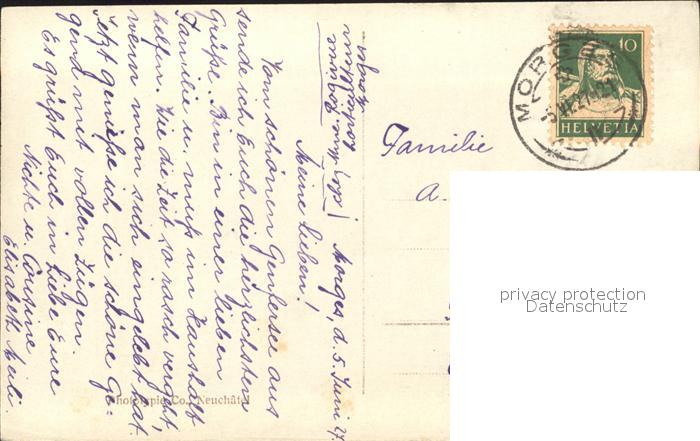 Morges, d. 5. Juni 27.
Meine Lieben!
Vom schönen Genfersee aus
sende ich Euch die herzlichsten
Grüße. Bin in einer lieben
Familie u. muß im Haushalt
helfen. Wie die Zeit so rasch vergeht,
wenn man sich eingelebt hat.
Jetzt genieße ich die schöne Ge=
gend mit vollen Zügen.
Es grüßt Euch in Liebe Eure
Nichte u. Cousine
Elisabeth Meili.
Phototypie Co., Neuchâtel
Familie
A.
10
HELVETIA
MORGES
privacy protection
Datenschutz